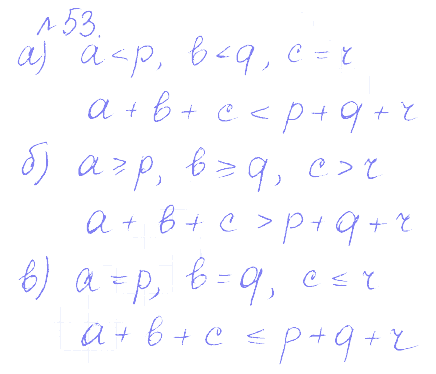 №53.
а) a < p, b < q, c = r
a + b + c < p + q + r
б) a ≥ p, b ≥ q, c > r
a + b + c > p + q + r
в) a = p, b = q, c ≤ r
a + b + c ≤ p + q + r